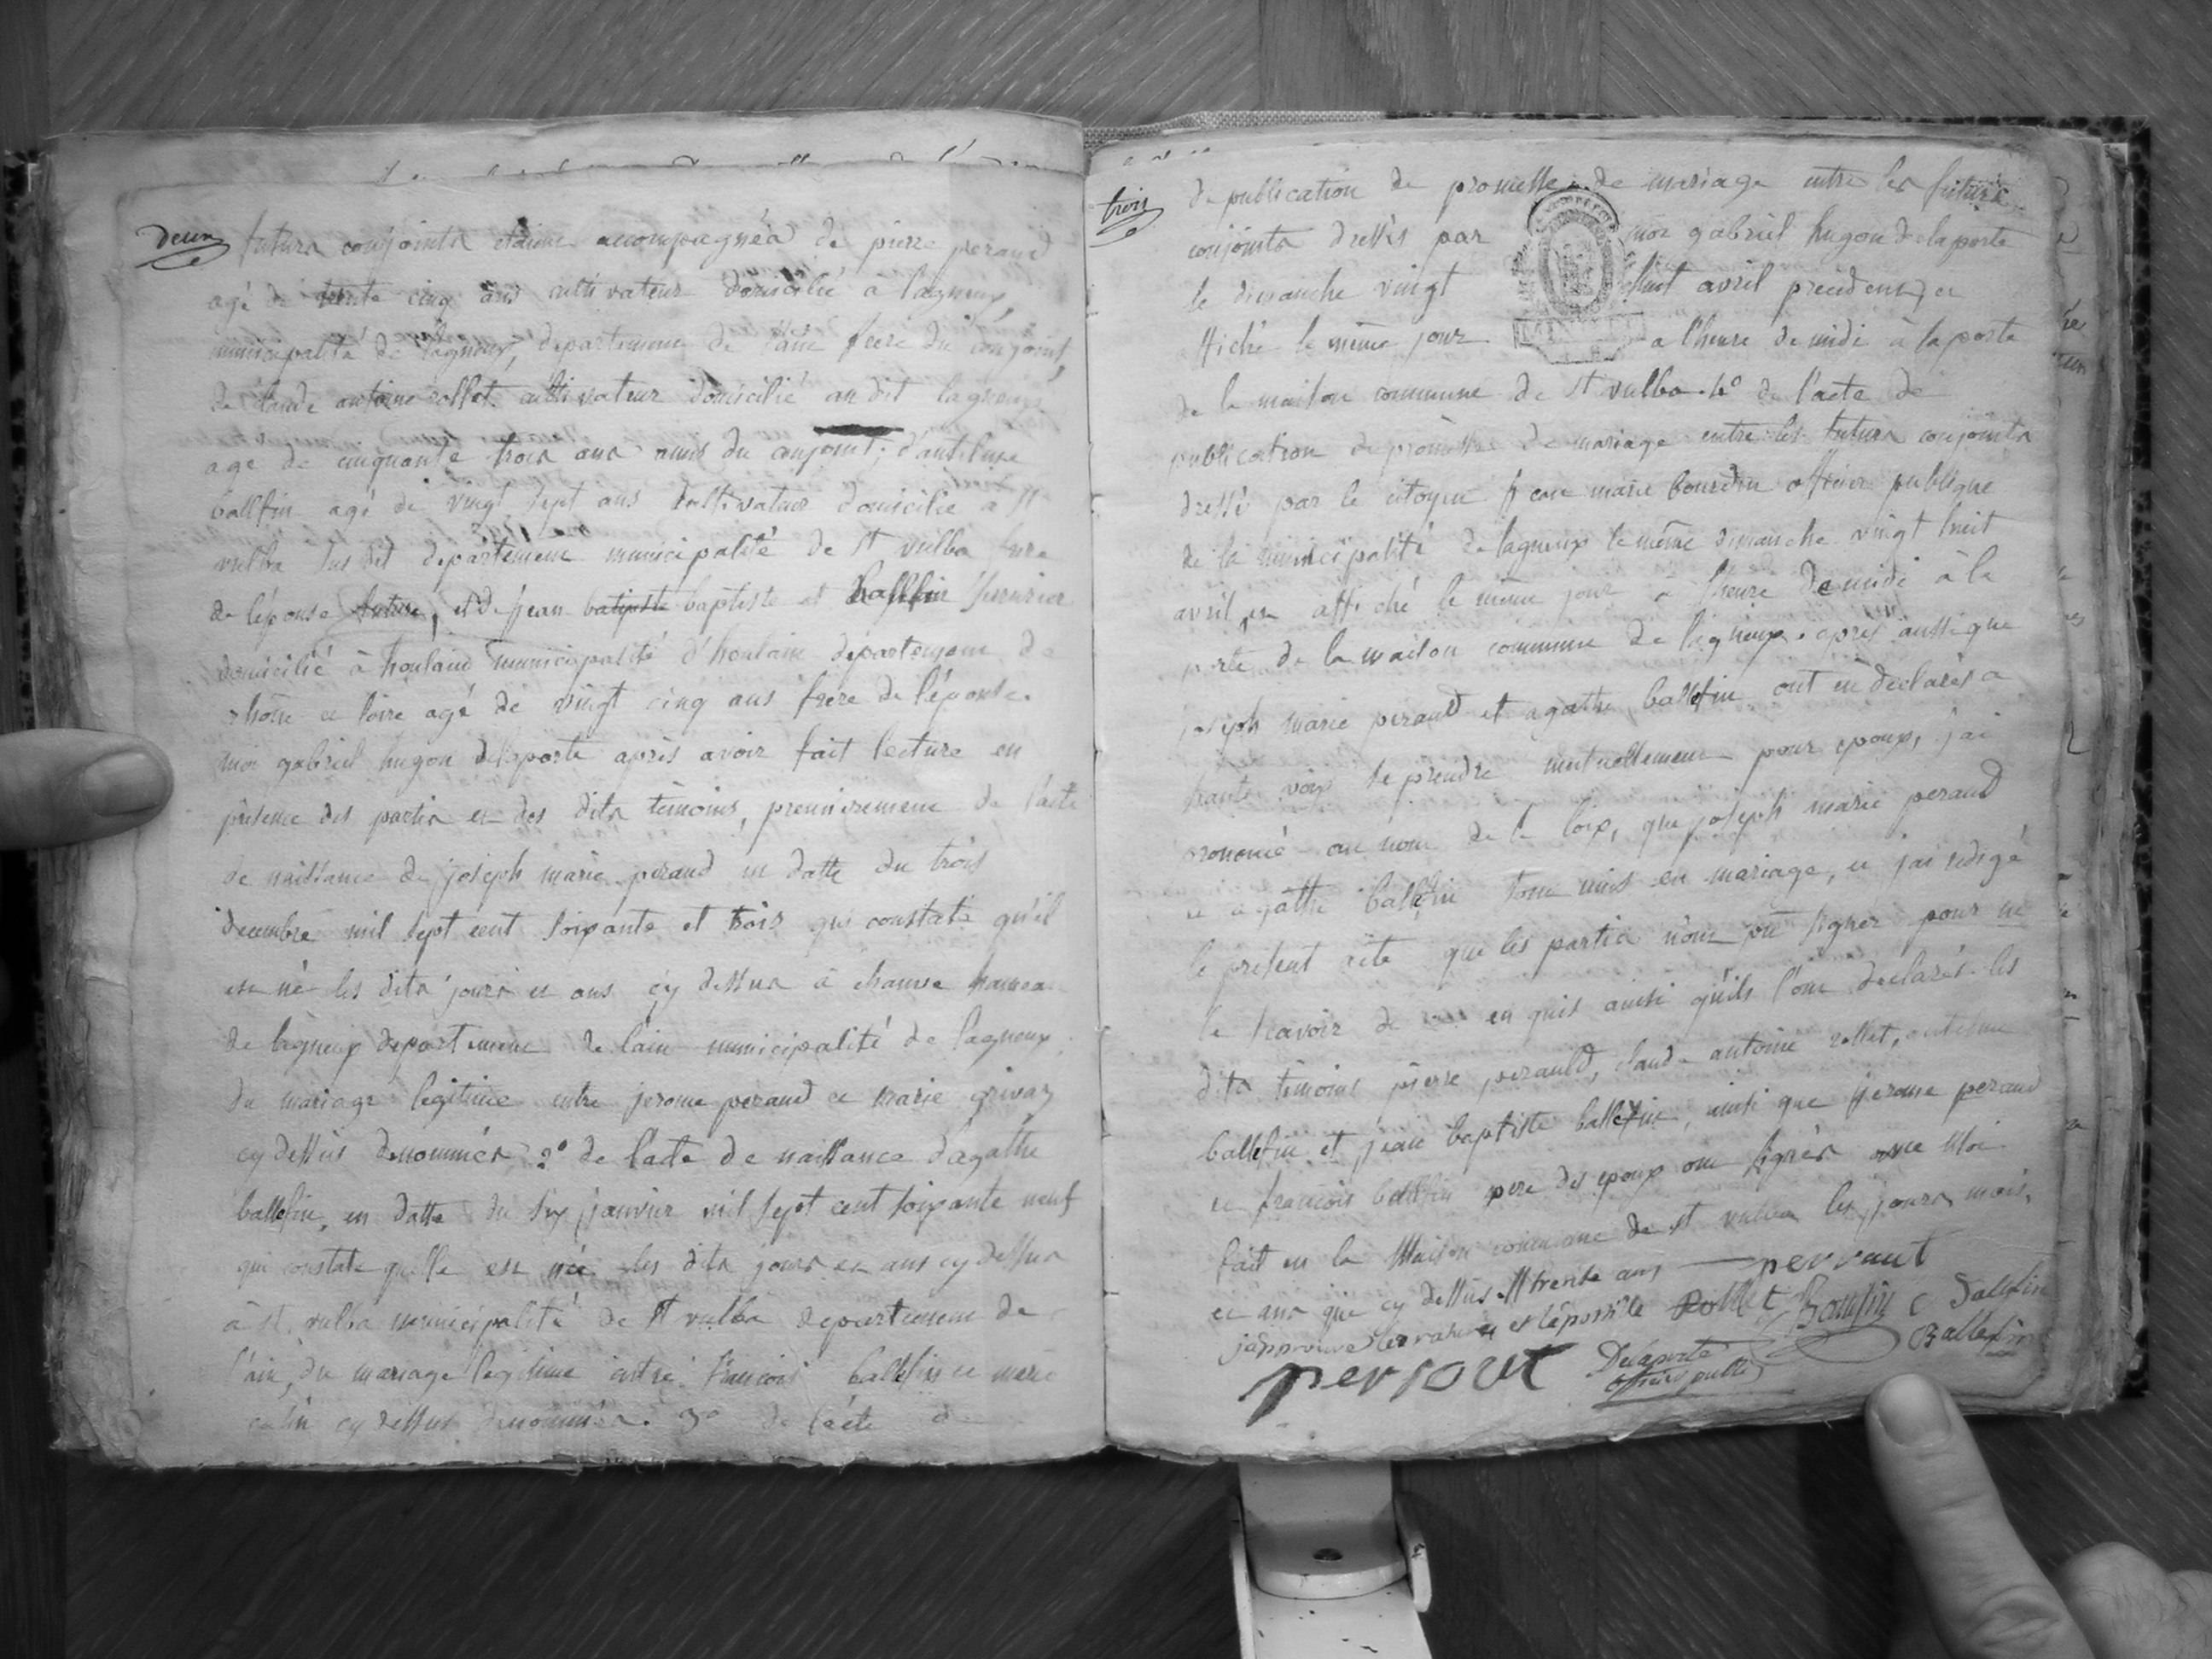 deux
futurs conjoints etoient accompagnés de pierre peraud
agé de trente cinq ans cultivateur domicilié à lagneux,
municipalité de lagneux, departement de l'ain frere du conjoint,
de claude antoine rollet cultivateur domicilié au dit lagneux
agé de cinquante trois ans amis du conjoint; d'antelme
balleffin agé de vingt sept ans cultivateur domicilié a st
vulba sus dit departement municipalité de st vulba frere
de l'epouse future, et de jean batipste baptiste et balleffin serrurier
domicilié à municipalité departement de
rhône et loire agé de vingt cinq ans frere de l'épouse.
moi gabriel hugon delaporte après avoir fait lecture en
présence des partis et des dits témoins, premierement de l'acte
de naissance de joseph marie peraud en datte du trois
decembre mil sept cent soixante et trois qui constate qu'il
est né les dits jours et ans cy dessus à hameau
de lagneux departement de l'ain municipalité de lagneux,
du mariage legitime entre jerome peraud et marie grivaz
cy dessus denommés 2° de l'acte de naissance d'agathe
balleffin, en datte du six janvier mil sept cent soixante neuf
qui constate qu'elle est née les dits jours et ans cy dessus
à st vulba municipalité de st vulba departement de
l'ain, du mariage legitime entre francois balleffin et marie
cy dessus denommés. 3° de l'acte de
trois
de publication de promesse de mariage entre les futurs
conjoints dressés par moi gabriel hugon delaporte
le dimanche vingt huit avril precedent, et
affiché le même jour a l'heure de midi à la porte
de la maison commune de st vulba. 4° de l'acte de
publication de promesse de mariage entre les futurs conjoints
dressé par le citoyen jean marie bourdin officier publique
de la municipalité de lagneux le même dimanche vingt huit
avril, et affiché le même jour à l'heure de midi à la
porte de la maison commune de lagneux. après aussi que
joseph marie peraud et agathe balleffin ont eu declarés a
haute voix se prendre mutuellement pour epoux, j'ai
prononcé au nom de la loix, que joseph marie peraud
et agathe balleffin sont unis en mariage, et j'ai redigé
le present acte que les partis n'ont pu signer pour ne
le scavoir de ce enquis ainsi qu'ils l'ont declarés les
dits témoins pierre perauld, claude antoine rollet, antelme
balleffin et jean baptiste balleffin, ainsi que jerome peraud
et francois balleffin pere des epoux ont signés avec Moi
fait en la Maison commune de st vulba les jours, mois,
et ans que cy dessus. trente ans perraut
j'approuve les ratures et Rollet Balleffin
perrout Delaporte Balleffin
officier public